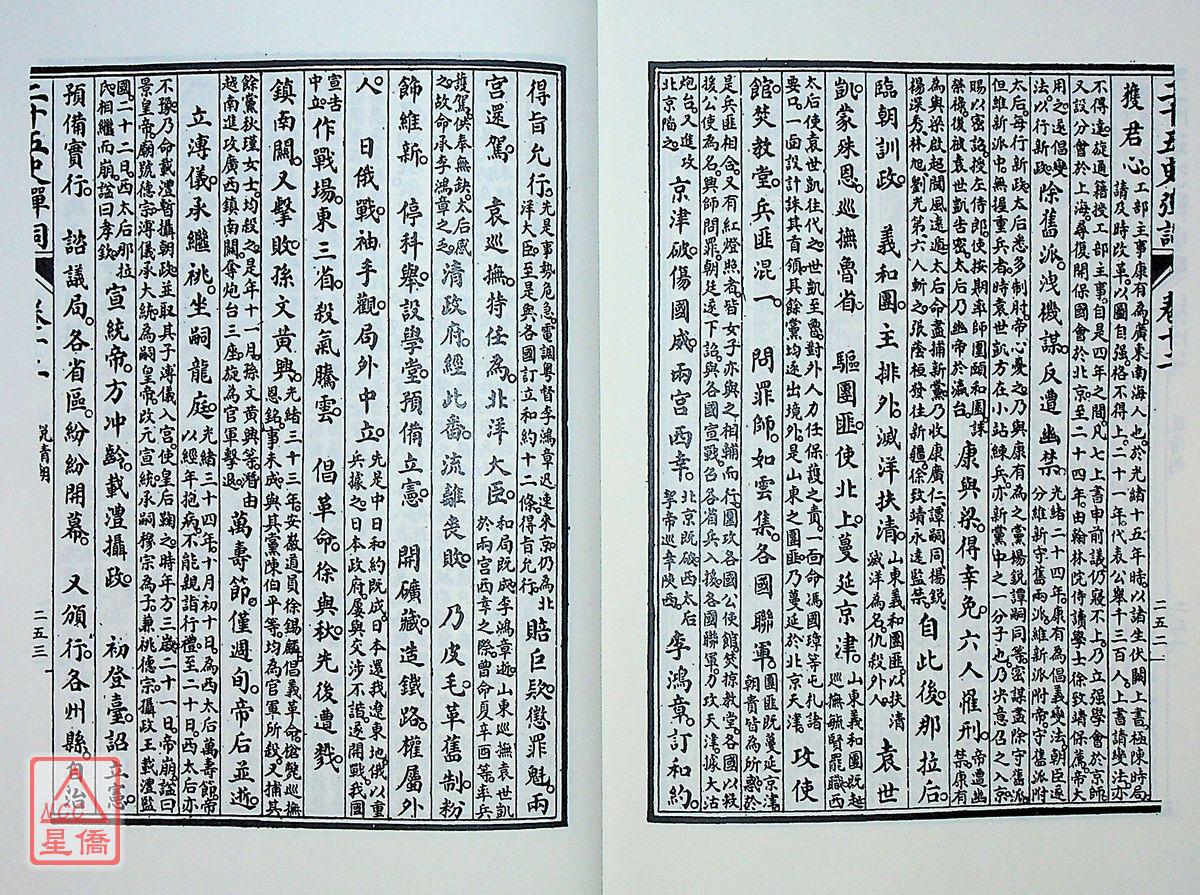 二十五史彈詞 卷十二 二五二
獲君心。
工部主事康有為廣東南海人也。於光緒十五年時。以諸生伏闕上書。極陳時局。
請及時改革。以圖自強。格不得上。二十一年。代表公舉千三百人。上書請變法。亦
不得達。旋通籍授工部主事。自是四年之間。凡七上書申前議。仍寢不上。乃立強學會於京師。
又設分會於上海。尋復開保國會於北京。至二十四年。由翰林院侍讀學士徐致靖保薦。帝大
用之。遂倡變
法。以行新政。
除舊派洩機謀反遭幽禁。
光緒二十四年。康有為倡義變法。朝臣遂
分維新守舊兩派。維新派附帝。守舊派附
太后。每行新政。太后悉多制肘。帝心憂之。乃與康有為之黨楊銳譚詞同等。密謀盡除守舊派。
但維新派中。無握重兵者。時袁世凱方在小站練兵。亦新黨中之一分子也。乃米意召之入京
賜以密詔。授左侍郎。使按期率師圍頤和園。謀
榮祿。後被袁世凱告密。太后乃幽帝於瀛台。
康與梁。得幸免六人罹刑。
帝遭幽
禁。康有
為與梁啟超聞風遠遁。太后命盡捕新黨。乃收康廣仁譚詞同楊銳。
楊深秀。林旭。劉光第六人斬之。張蔭桓發往新疆。徐致靖永遠監禁。
自此後。那拉后。
臨朝訓政。 義和團。主排外。滅洋扶清。
山東義和團匪以扶清
滅洋為名。仇殺外人。
袁世
凱。蒙殊恩。巡撫魯省。 驅團匪。使北上。蔓延京津。
山東義和團既起
巡撫毓賢罷職。西
太后使袁世凱往代之。世凱至魯。對外人力任保護之責。一面命馮國璋等屯札諸
要口。一面設計誅其首領。其餘黨均逐出境外。是山東之團匪。乃蔓延於北京天津。
攻使
館。焚教堂。兵匪混一。 問罪師。如雲集。各國聯軍。
團匪既蔓延京津
朝貴皆為所惑。於
是兵匪相合。又有紅燈照者。皆女子。亦與之相輔而行。圍攻各國公使館。焚掠教堂。各國以救
援公使為名。興師問罪。朝廷遂下詔。與各國宣戰。召各省兵入援。各國聯軍。方攻天津。據大沽
炮台。又進攻
北京陷之。
京津破。傷國威。兩宮西幸。
北京既破。西太后
挈帝巡幸陝西。
李鴻章。訂和約。
得旨允行。
先是事勢危急。電調粵督李鴻章迅速來京。仍為北
洋大臣。至是與各國訂立和約十二條。得旨允行。
賠巨欵。懲罪魁。兩
宮還駕。 袁巡撫。特任為。北洋大臣。
和局既成。李鴻章逝。山東巡撫袁世凱
於兩宮西幸之際。曾命夏辛酉等。率兵
護駕。供奉無缺。太后感
之。故命承李鴻章之乏。
清政府。經此番。流離喪敗。 乃皮毛。革舊制。粉
飾維新。 停科舉。設學堂。預備立憲。 開礦藏。造鐵路。權屬外
人。 日俄戰。袖手觀。局外中立。
先是中日和約既成。日本還我遼東地。俄以重
兵據之。日本政府屢與交涉不諧。遂開戰。我國
宣告
中立。
作戰場。東三省。殺氣騰雲。 倡革命。徐與秋。先後遭戮。
鎮南關。又擊敗。孫文黃興。
光緒三十三年。安徽道員徐錫麟。倡義革命。槍斃巡撫
恩銘。事未成。與其黨陳伯平等。均為官軍所殺。又捕其
餘黨秋瑾女士。均殺之。是年十一月。孫文黃興等。潛由
越南進攻廣西鎮南關。奪炮台三座。旋為官軍擊退。
萬壽節。僅週旬。帝后並逝。
立溥儀。承繼祧。坐嗣龍庭。
光緒三十四年。十月初十日。為西太后萬壽節。帝
以經年抱病。不能親詣行禮。至二十日。西太后亦
不豫。乃命載灃暫攝朝政。並取其子溥儀入宮。使皇后鞠之。時年方三歲。二十一日。帝崩。諡曰
景皇帝。廟號德宗。溥儀承大統。為嗣皇帝。改元宣統。承嗣穆宗為子。兼祧德宗。攝政王載灃監
國。二十二日。西太后那拉
氏相繼而崩。諡曰孝欽。
宣統帝。方冲齡。載灃攝政。 初登臺。詔立憲。
預備實行。 諮議局。各省區。紛紛開幕。 又頒行。各州縣。自治
二十五史彈詞 卷十二 說清朝 二五三
NCC
星僑